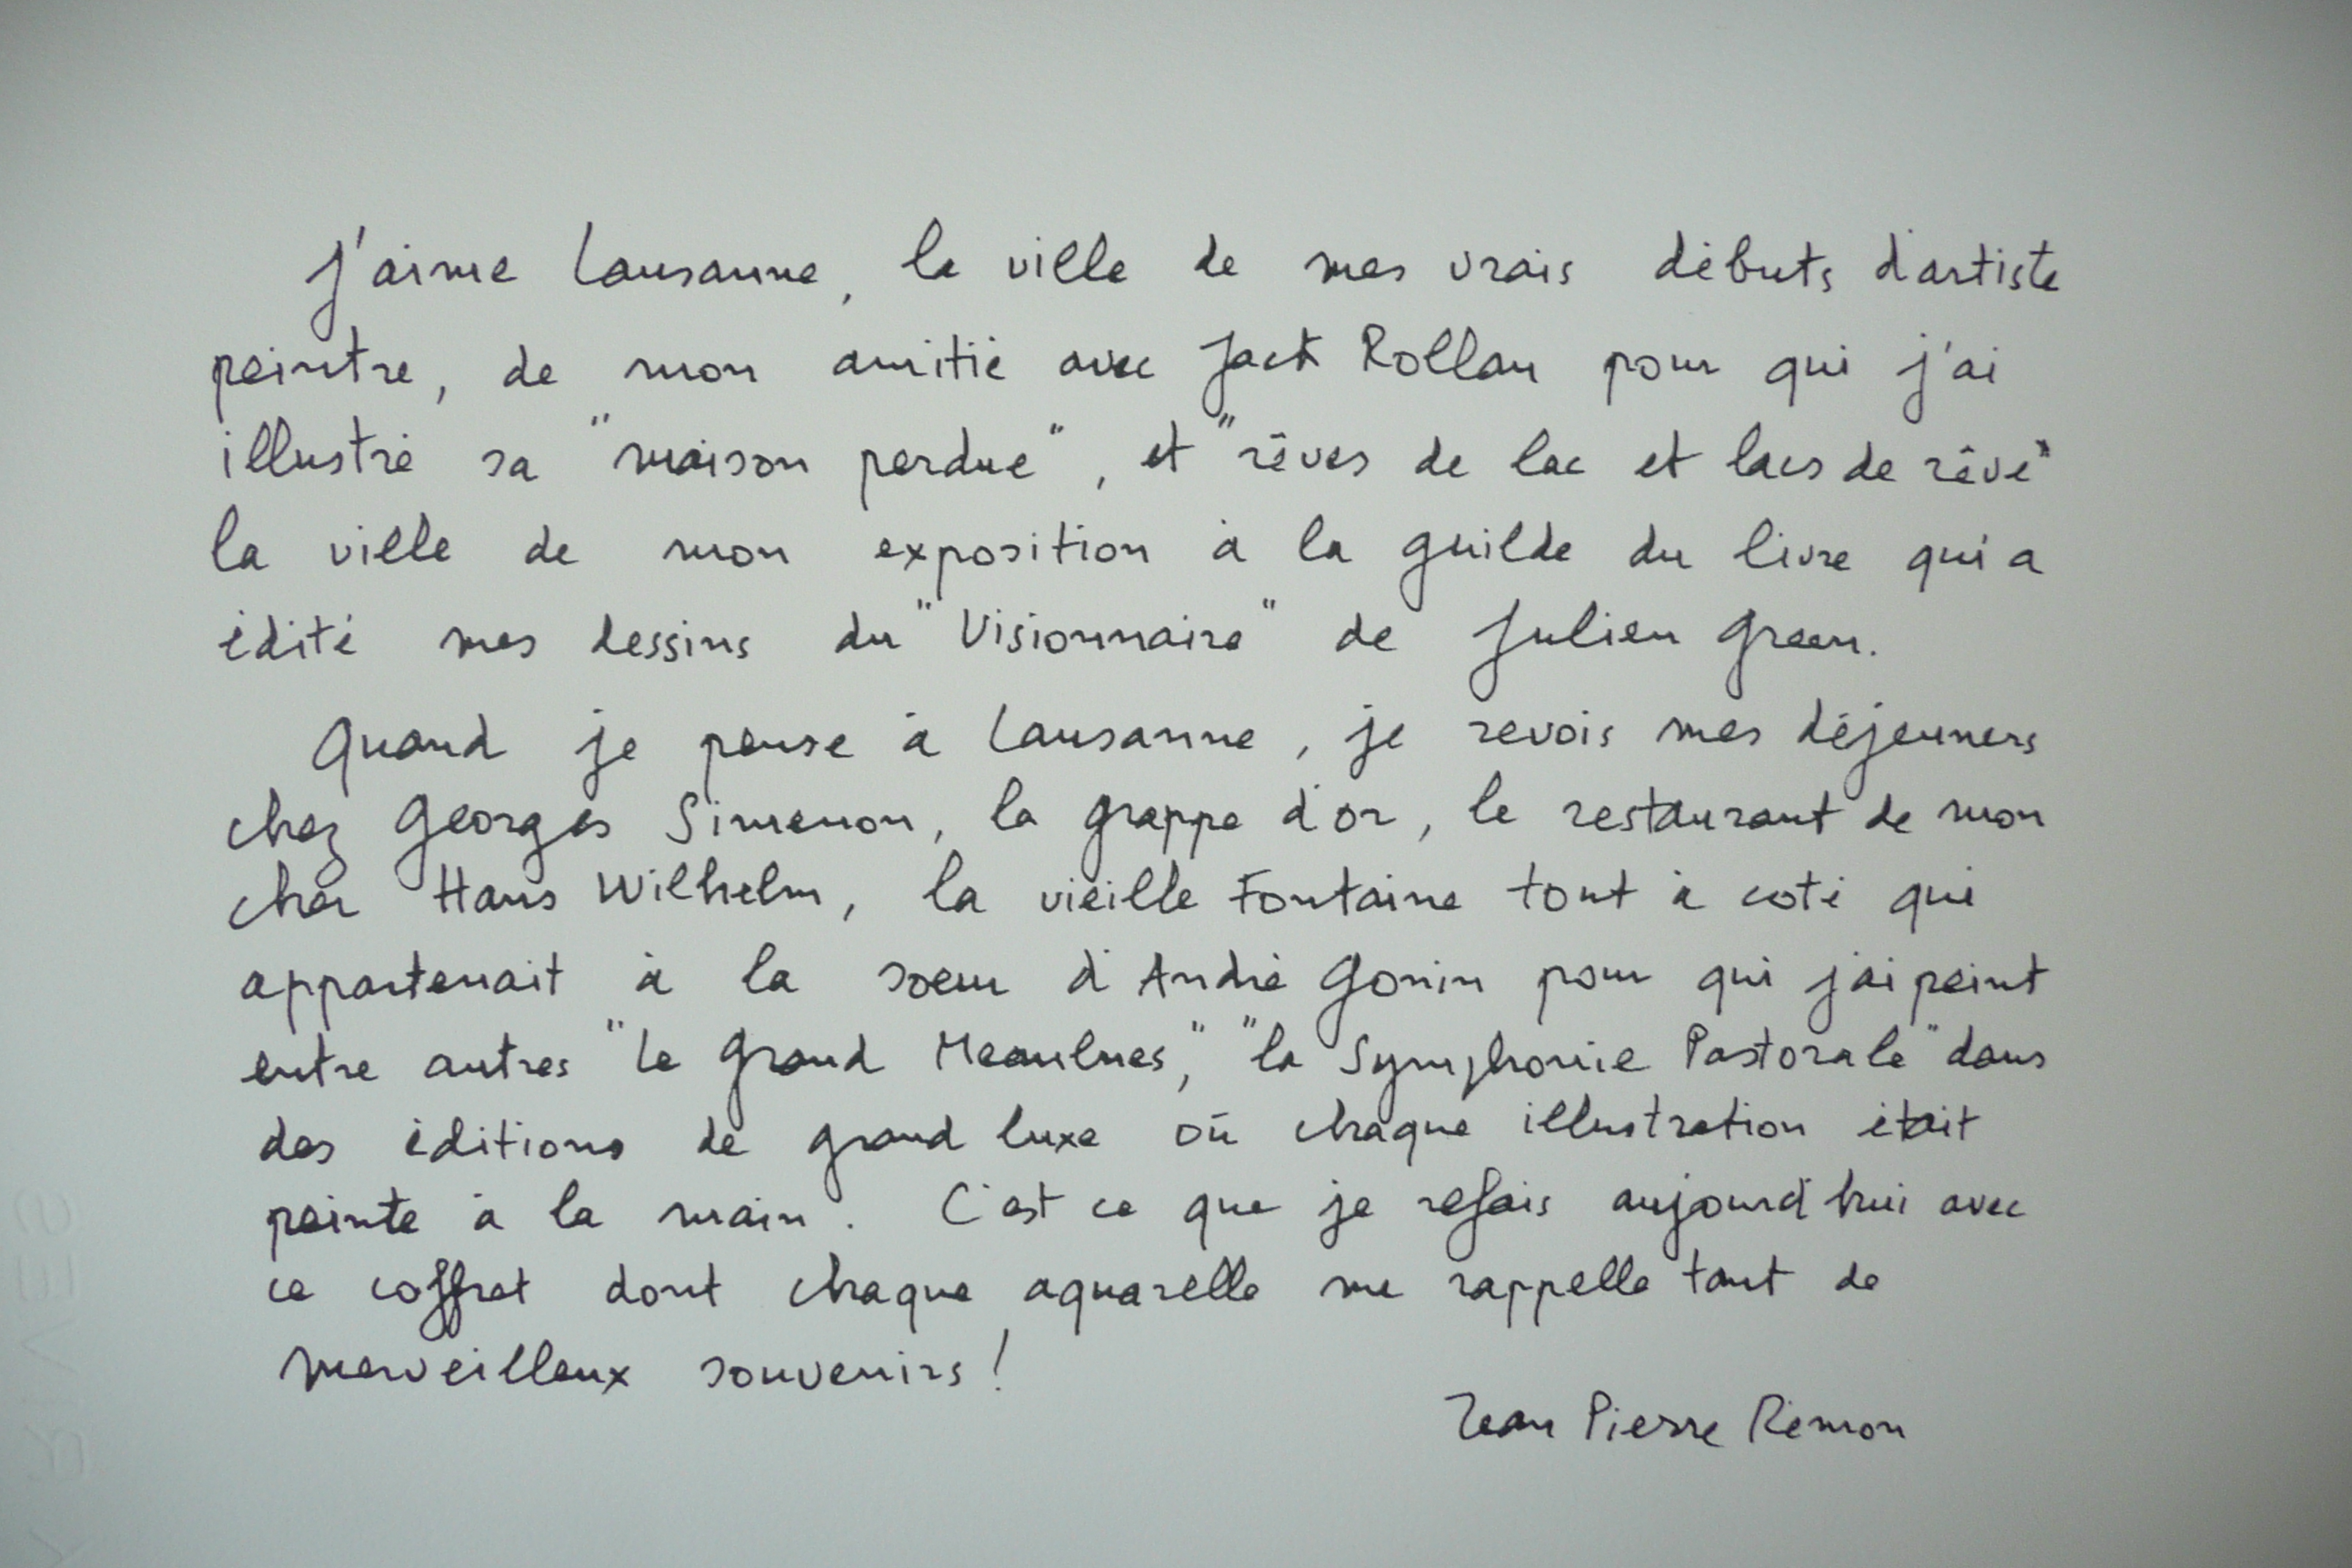 J'aime Lausanne, la ville de mes vrais débuts d'artiste
peintre, de mon amitié avec Jack Rollan pour qui j'ai
illustré sa "maison perdue", et "rêves de lac et lacs de rêve"
la ville de mon exposition à la guilde du livre qui a
édité mes dessins du "Visionnaire" de Julien Green.
Quand je pense à Lausanne, je revois mes déjeuners
chez Georges Simenon, la grappe d'or, le restaurant de mon
cher Hans Wilhelm, la vieille Fontaine tout à coté qui
appartenait à la soeur d'André Gonin pour qui j'ai peint
entre autres "Le Grand Meaulnes", "la Symphonie Pastorale" dans
des éditions de grand luxe où chaque illustration était
peinte à la main. C'est ce que je refais aujourd'hui avec
ce coffret dont chaque aquarelle me rappelle tant de
merveilleux souvenirs!
Jean Pierre Rémon